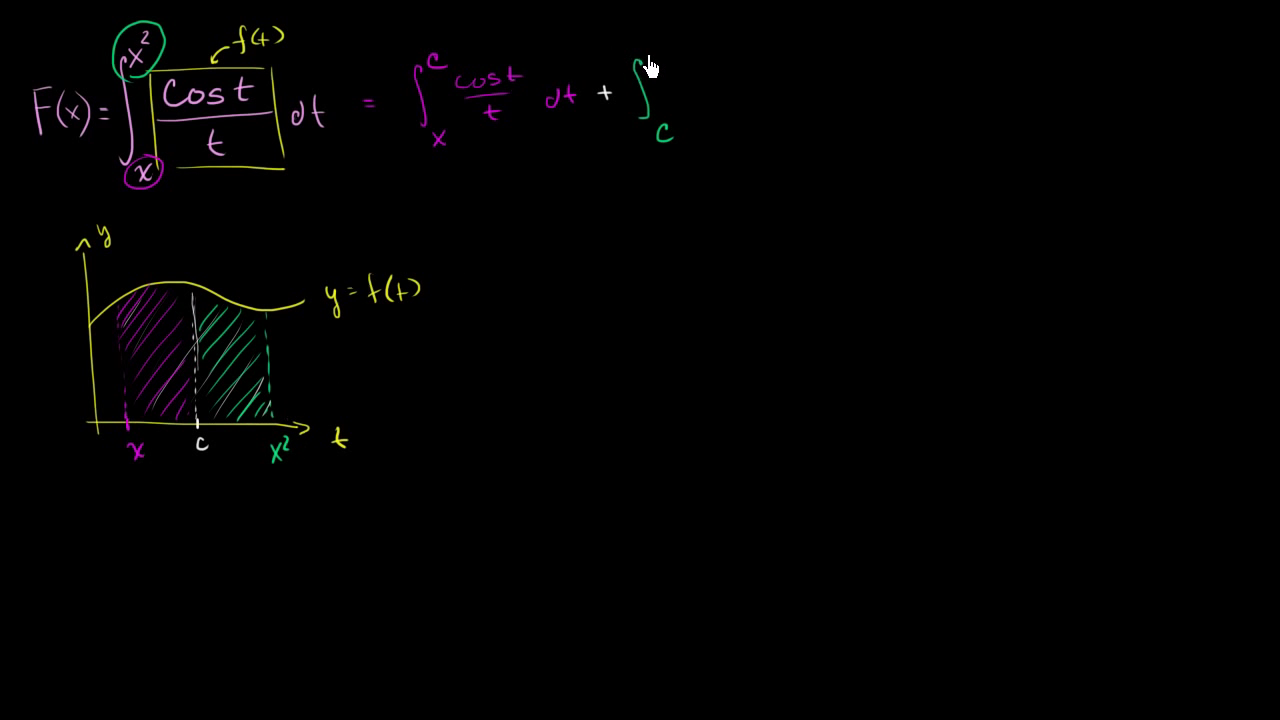 f(t)
F(x) = ∫_x^{x²} cos t / t dt = ∫_x^c cos t / t dt + ∫_c
y
y = f(t)
x c x² t